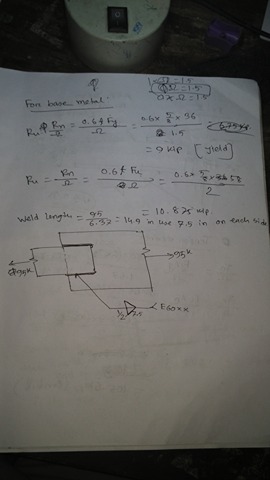 Φ = 1.5
Ω = 1.5
For base metal
Ru Rn/Ω = 0.6 t Fy/Ω = 0.6 x 5/8 x 36/1.5
= 9 kip [yield]
Ru = Rn/Ω = 0.6 t Fu/Ω = 0.6 x 5/8 x 58/2
= 10.875 kip.
Weld length = 95/6.37 = 14.9 in use 7.5 in on each side
95k
95k
1/2 7.5 E60xx